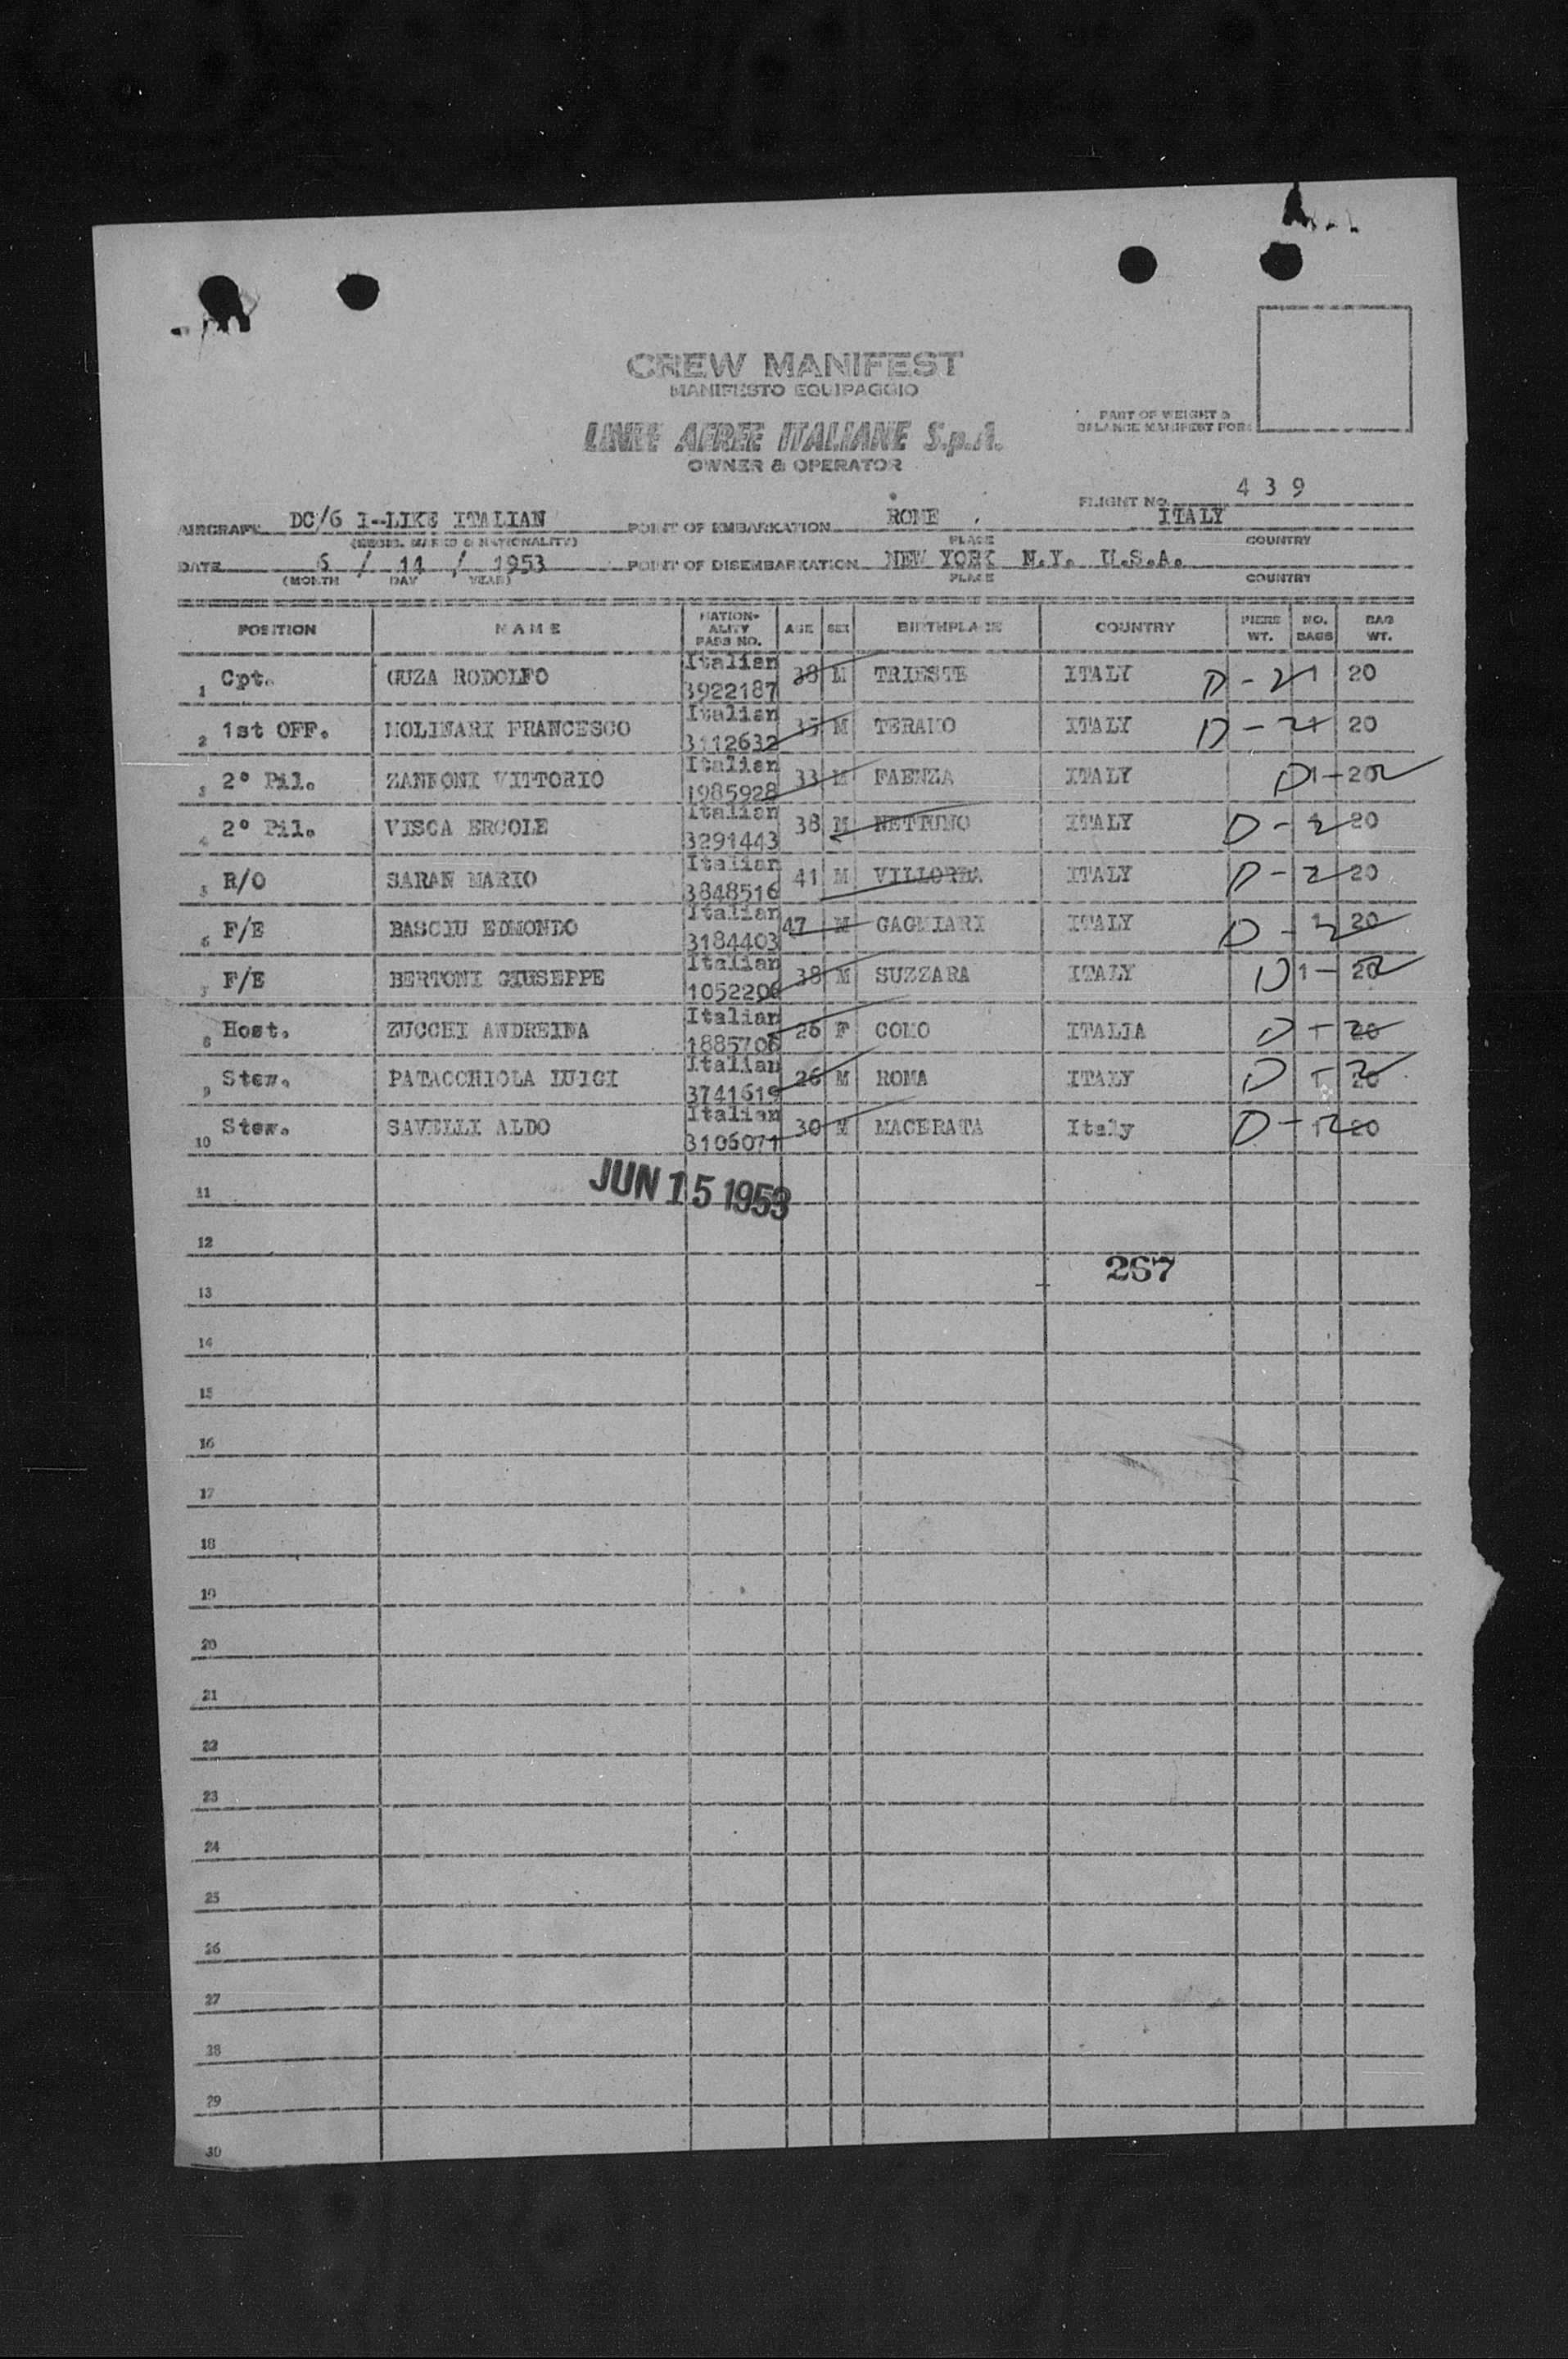 CREW MANIFEST
MANIFESTO EQUIPAGGIO
LINEE AEREE ITALIANE S.p.A.
OWNER & OPERATOR
PART OF WEIGHT &
BALANCE MANIFEST FOR:
FLIGHT NO. 439
AIRCRAFT DC/6 I-LIKE ITALIAN POINT OF EMBARKATION ROME, ITALY
(REGIS. MARKS & NATIONALITY) PLACE COUNTRY
DATE 6 / 14 / 1953 POINT OF DISEMBARKATION NEW YORK N.Y. U.S.A.
(MONTH DAY YEAR) PLACE COUNTRY
POSITION NAME NATION-ALITY PASS NO. AGE SEX BIRTHPLACE COUNTRY PIERS WT. NO. BAGS BAG WT.
1 Cpt. RODOLFO Italian 3922187 38 M TRIESTE ITALY D-2 1 20
2 1st OFF. MOLINARI FRANCESCO Italian 3112632 35 M TERAMO ITALY D-2 1 20
3 2° Pil. ZANNONI VITTORIO Italian 1985928 33 M FAENZA ITALY D-2 1 20
4 2° Pil. VISCA ERCOLE Italian 3291443 38 M NETTUNO ITALY D-2 1 20
5 R/O SARAN MARIO Italian 3848516 41 M VILLORBA ITALY D-2 20
6 F/E BASCIU EDMONDO Italian 3184403 47 M GAGMIARI ITALY D-2 1 20
7 F/E BERTONI GIUSEPPE Italian 1052206 38 M SUZZARA ITALY D-2 1 20
8 Host. ZUCCHI ANDREINA Italian 1885706 26 F COMO ITALIA D-2 1 20
9 Stew. PATACCHIOLA LUIGI Italian 3741619 26 M ROMA ITALY D-2 1 20
10 Stew. SAVELLI ALDO Italian 3106071 30 M MACERATA Italy D-2 1 20
JUN 15 1953
11
12
267
13
14
15
16
17
18
19
20
21
22
23
24
25
26
27
28
29
30